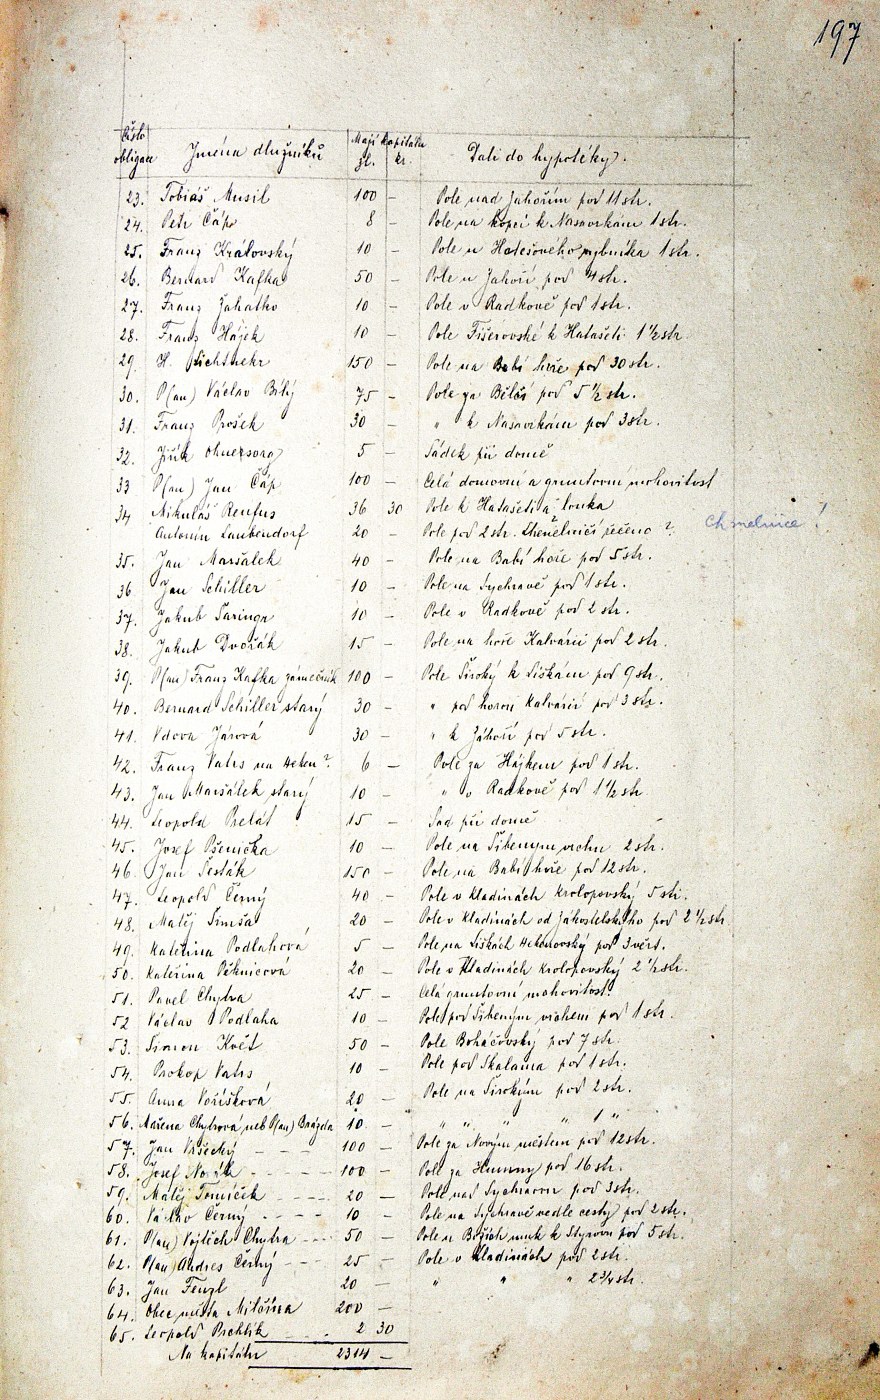 197
Číslo obligace Jména dlužníků Mají kapitálu zl. kr. Dali do hypotéky.
23. Tobiáš Musil 100 – Pole nad Jahořím pod 11 str.
24. Petr Čáp 8 – Pole na kopci k Nasavrkám 1 str.
25. Franz Královský 10 – Pole u rybníka 1 str.
26. Bernard Kafka 50 – Pole u Jahoří pod 4 str.
27. Franz Zahátko 10 – Pole v Radkově pod 1 str.
28. Franz Hájek 10 – Pole Fišerovské k Hatašeti 1 1/2 str.
29. H. 150 – Pole na Babí hoře pod 30 str.
30. P(an) Václav Bílý 75 – Pole za pod 5 1/2 str.
31. Franz Prošek 30 – " k Nasavrkám pod 3 str.
32. Jiřík Ohnesorg 5 – Sádek při domě
33 P(an) Jan Čáp 100 – Celá domovní a gruntovní mohovitost
34 Mikuláš Renfus 36 30 Pole k Hatašeti a louka
Antonín Laubendorf 20 – Pole pod 2 str. řečeno ? Chmelnice !
35. Jan Maršálek 40 – Pole na Babí hoře pod 5 str.
36 Jan Schiller 10 – Pole na Sychravě pod 1 str.
37. Jakub Šaringr 10 – Pole v Radkově pod 2 str.
38. Jakub Dvořák 15 – Pole na hoře Kalvárii pod 2 str.
39. P(an) Franz Kafka zámečník 100 – Pole Široký k Liškám pod 9 str.
40. Bernard Schiller starý 30 – " pod horou Kalvárií pod 3 str.
41. Vdova Járová 30 – " k Záhoří pod 5 str.
42. Franz Vatrs na Heken ? 6 – Pole za Hájkem pod 1 str.
43. Jan Maršálek starý 10 – " v Radkově pod 1 1/2 str.
44. Leopold Prelát 15 – Sad při domě –
45. Josef Pšenička 10 – Pole na Šibeným vrchu 2 str.
46. Jan Šesták 150 – Pole na Babí hoře pod 12 str.
47. Leopold Černý 40 – Pole v Kladinách Krolopovský 5 str.
48. Matěj Šimša 20 – Pole v Kladinách od pod 2 1/2 str.
49. Kateřina Podlahová 5 – Pole na Liškách Hekenovský pod 3 věrt.
50. Kateřina Pěknicová 20 – Pole v Kladinách Krolopovský 2 1/2 str.
51. Pavel Chytra 25 – Celá gruntovní mohovitost.
52 Václav Podlaha 10 – Pole pod Šibeným vrchem pod 1 str.
53. Simon Květ 50 – Pole Boháčovský pod 7 str.
54. Prokop Vatrs 10 – Pole pod Skalama pod 1 str.
55. Anna Voříšková 20 – Pole na Širokým pod 2 str.
56. Mařena Chytrová neb P(an) Brázda 10 – " " " " 1 "
57. Jan Vršecký – – – 100 – Pole za Novým městem pod 12 str.
58. Josef Novák – – – – 100 – Pole za Humny pod 16 str.
59. Matěj Tomíček – – – – 20 – Pole nad Sychravou pod 3 str.
60. Václav Černý – – – – 10 – Pole na Sychravě vedle cesty pod 2 str.
61. P(an) Vojtěch Chytra – – – 50 – Pole u Božích muk k Styrovu pod 5 str.
62. P(an) Andres Černý – – – 25 – Pole v Kladinách pod 2 str.
63. Jan Fenzl 20 – " " " 2 3/4 str.
64. Obec města Milčína 200 –
65. Leopold Prchlík – – . 2 30
Na kapitálu 2314 –